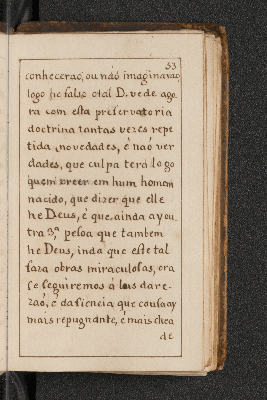 53
conhecerao, ou não imaginarao
logo he falso o tal D. vede ago
ra com esta preservatoria
doctrina tantas vezes repe
tida, novedades, é não ver
dades, que culpa terá logo
quem creer em hum homem
nacido, que dizer que elle
he Deus, é que ainda ay ou
tra 3ª pesoa que tambem
he Deus, inda que este tal
fara obras miraculosas, ora
se seguiremos á luis da re-
zaó, é da siencia que cousa ay
mais repugnante, é mais chea
de